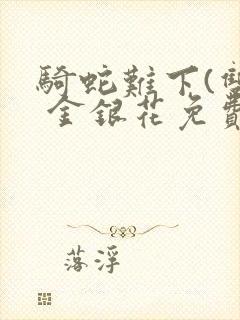 騎蛇難下(雙
金銀花免費
落浮